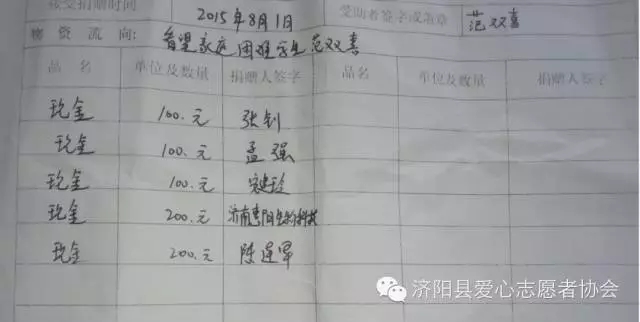 接受捐赠时间 2015年8月1日 受助者签字或盖章 范双喜
物资流向: 看望家庭困难学生范双喜
品名 单位及数量 捐赠人签字 品名 单位及数量 捐赠人签字
现金 100.元 张钊
现金 100.元 孟强
现金 100.元
现金 200.元 济南惠阳生物科技
现金 200.元 陈连军
济阳县爱心志愿者协会